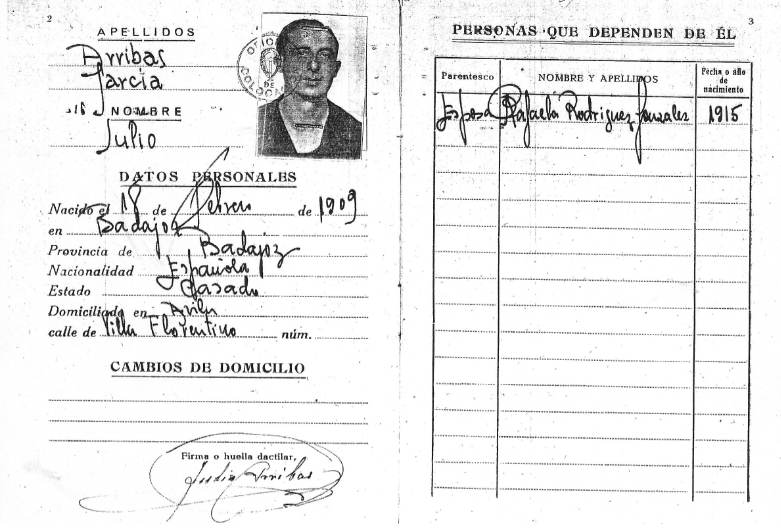 2
APELLIDOS
Arribas
García
NOMBRE
Julio
DATOS PERSONALES
Nacido el 18 de Febrero de 1909
en Badajoz
Provincia de Badajoz
Nacionalidad Española
Estado Casado
Domiciliado en Avila
calle de Villa Florentino núm.
CAMBIOS DE DOMICILIO
Firma o huella dactilar,
Julio Arribas
3
PERSONAS QUE DEPENDEN DE ÉL
Parentesco NOMBRE Y APELLIDOS Fecha o año de nacimiento
Esposa Rafaela Rodriguez Gonzalez 1915